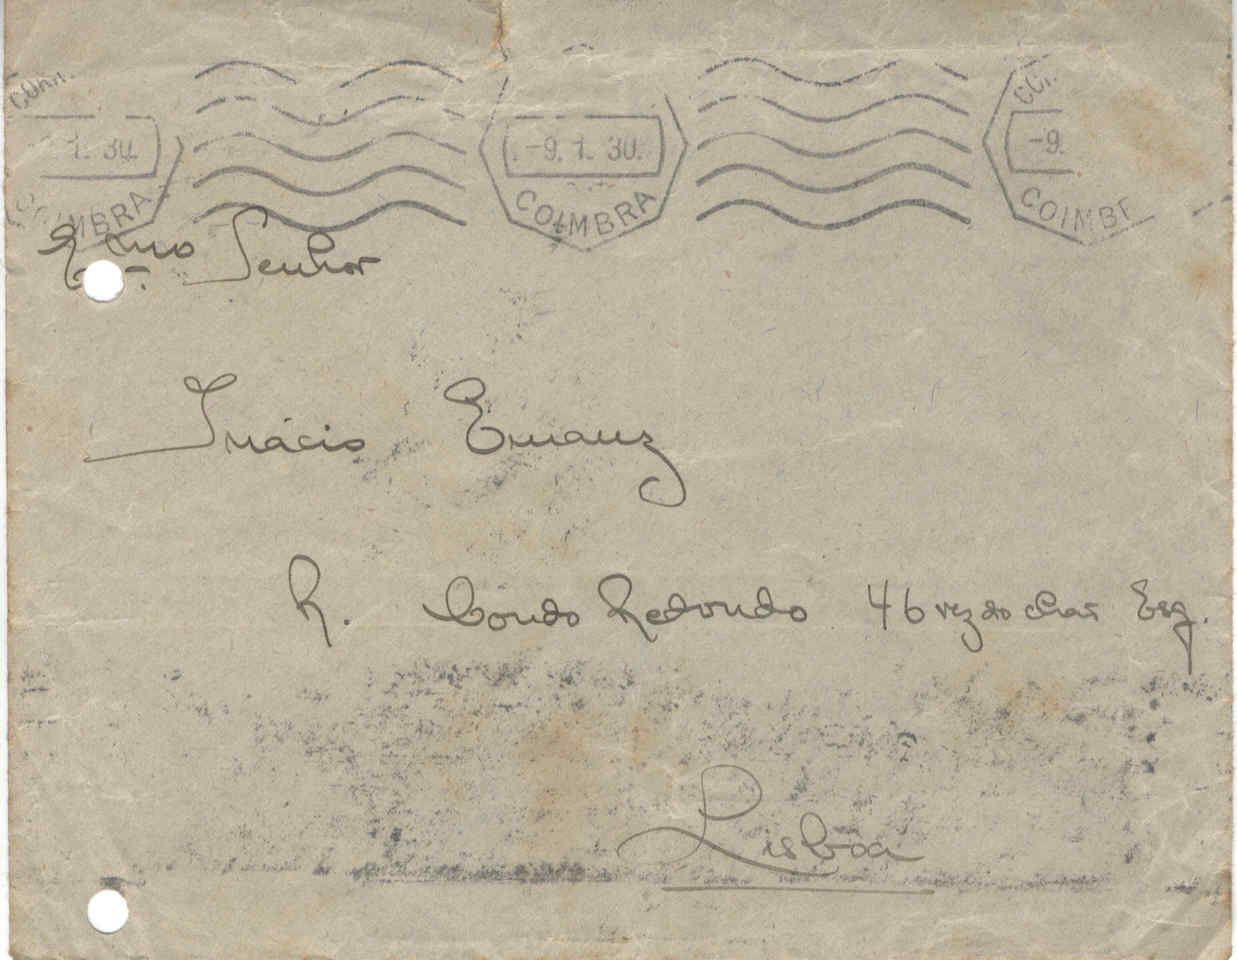 COIM
1. 30.
COIMBRA
-9. 1. 30.
COIMBRA
COI
-9.
COIMBR
Exmo Senhor
Inácio Emauz
R. Conde Redondo 46 rez do chao Esq.
Lisboa